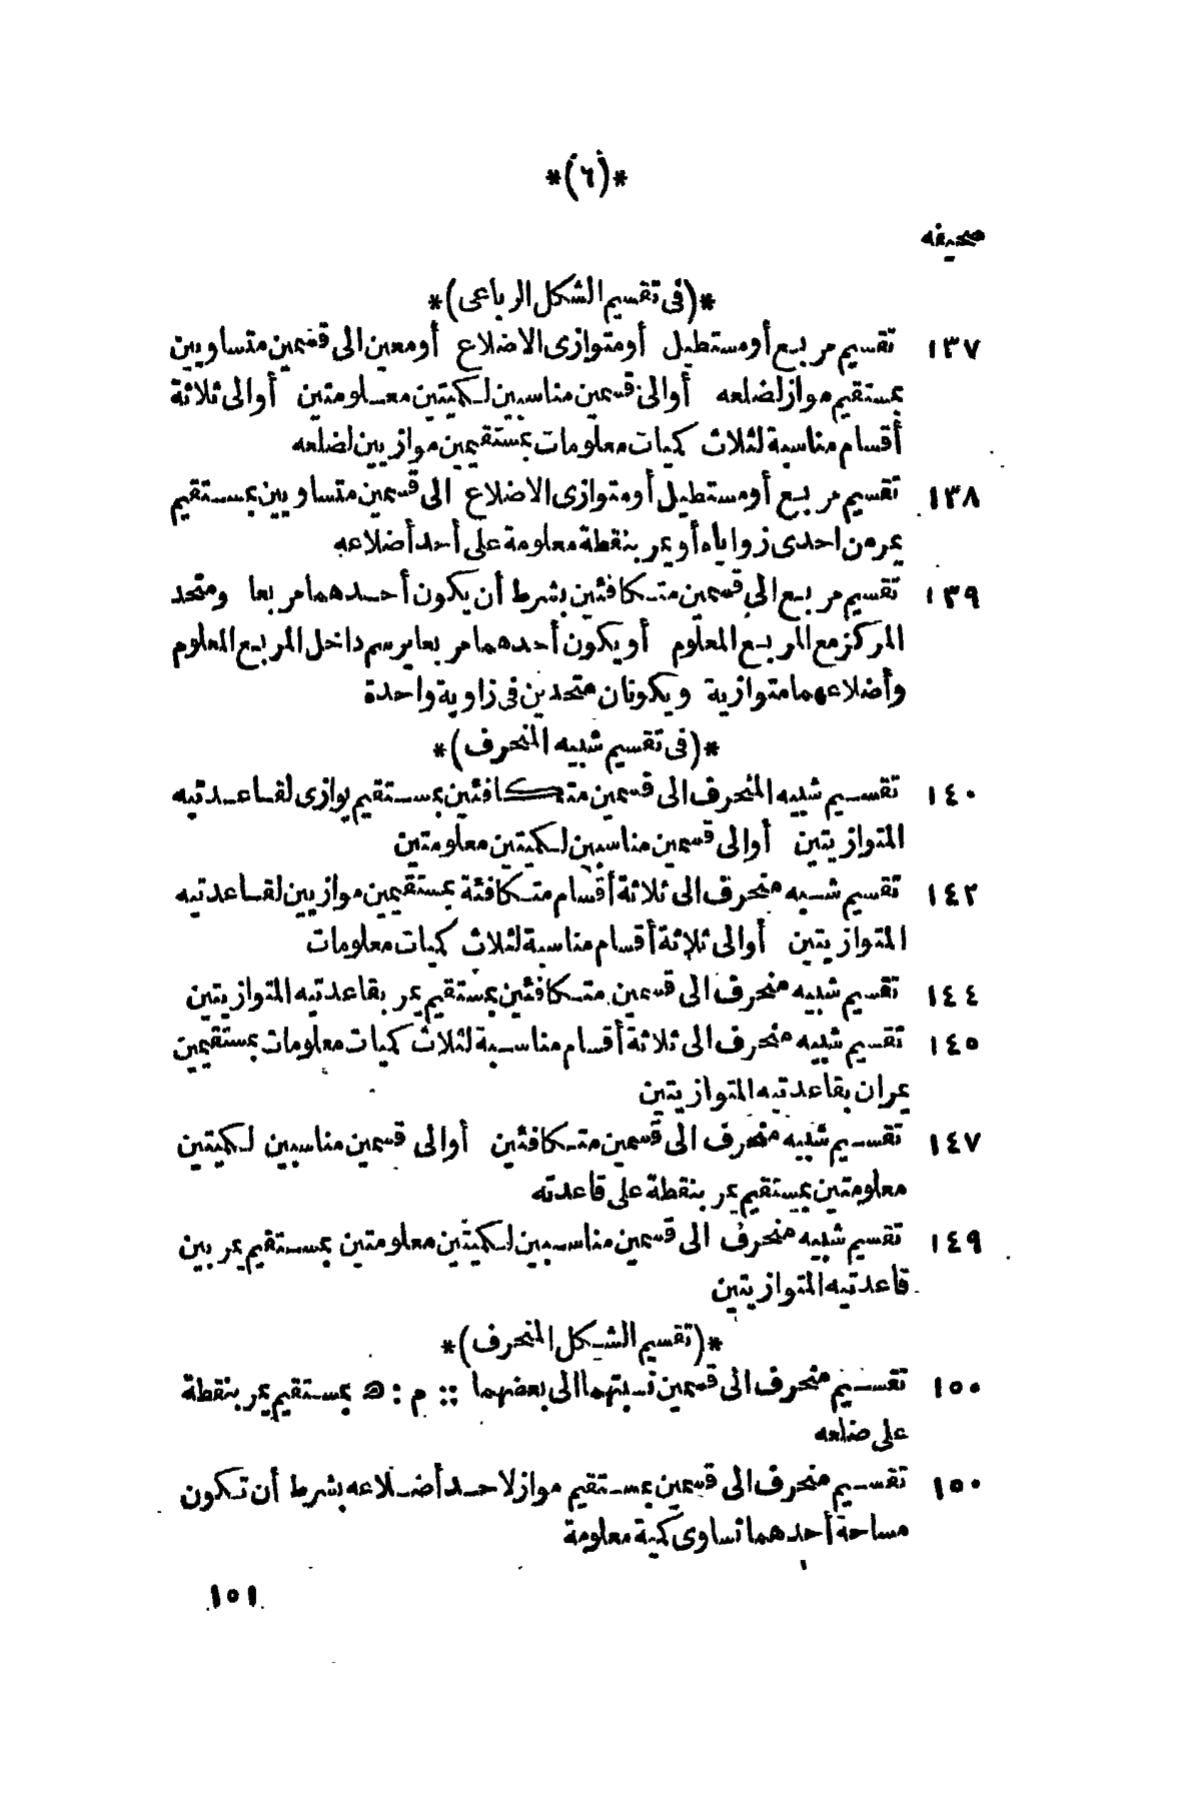 *(٦)*
صحيفه
*(فى تقسيم الشكل الرباعى)*
١٣٧ تقسيم مربع أومستطيل أومتوازى الاضلاع أومعين الى قسمين متساويين
بمستقيم مواز لضلعه أوالى قسمين مناسبين لكميتين معلومتين أوالى ثلاثة
أقسام مناسبة لثلاث كميات معلومات بمستقيمين موازيين لضلعه
١٣٨ تقسيم مربع أومستطيل أومتوازى الاضلاع الى قسمين متساويين بمستقيم
يمر من احدى زواياه أو يمر بنقطة معلومة على أحد أضلاعه
١٣٩ تقسيم مربع الى قسمين متكافئين بشرط أن يكون أحدهما مربعا ومتحد
المركز مع المربع المعلوم أو يكون أحدهما مربعا يرسم داخل المربع المعلوم
وأضلاعهما متوازية ويكونان متحدين فى زاوية واحدة
*(فى تقسيم شبيه المنحرف)*
١٤٠ تقسيم شبيه المنحرف الى قسمين متكافئين بمستقيم يوازى لقاعدتيه
المتوازيتين أوالى قسمين مناسبين لكميتين معلومتين
١٤٢ تقسيم شبيه منحرف الى ثلاثة أقسام متكافئة بمستقيمين موازيين لقاعدتيه
المتوازيتين أوالى ثلاثة أقسام مناسبة لثلاث كميات معلومات
١٤٤ تقسيم شبيه منحرف الى قسمين متكافئين بمستقيم يمر بقاعدتيه المتوازيتين
١٤٥ تقسيم شبيه منحرف الى ثلاثة أقسام مناسبة لثلاث كميات معلومات بمستقيمين
يمران بقاعدتيه المتوازيتين
١٤٧ تقسيم شبيه منحرف الى قسمين متكافئين أوالى قسمين مناسبين لكميتين
معلومتين بمستقيم يمر بنقطة على قاعدته
١٤٩ تقسيم شبيه منحرف الى قسمين مناسبين لكميتين معلومتين بمستقيم يمر بين
قاعدتيه المتوازيتين
*(تقسيم الشكل المنحرف)*
١٥٠ تقسيم منحرف الى قسمين نسبتهما الى بعضهما :: م : ه بمستقيم يمر بنقطة
على ضلعه
١٥٠ تقسيم منحرف الى قسمين بمستقيم مواز لاحد أضلاعه بشرط أن تكون
مساحة أحدهما تساوى كمية معلومة
١٥١